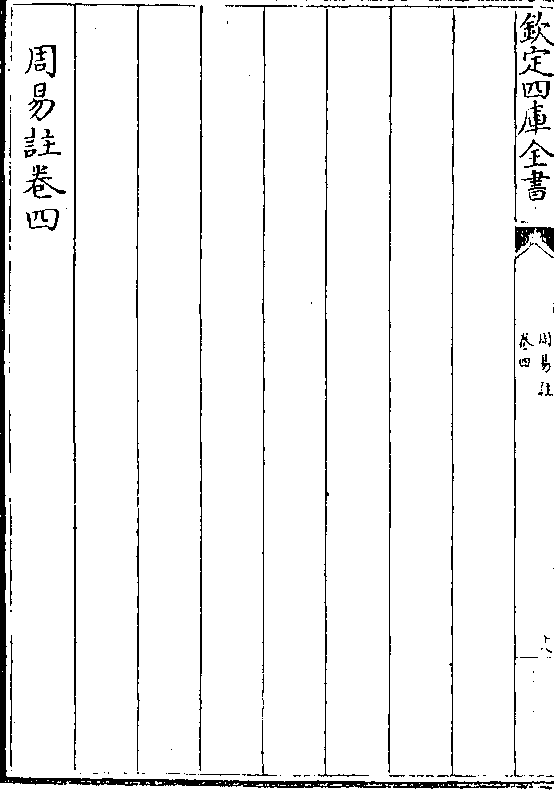 欽定四庫全書
周易註
卷四
周易註卷四